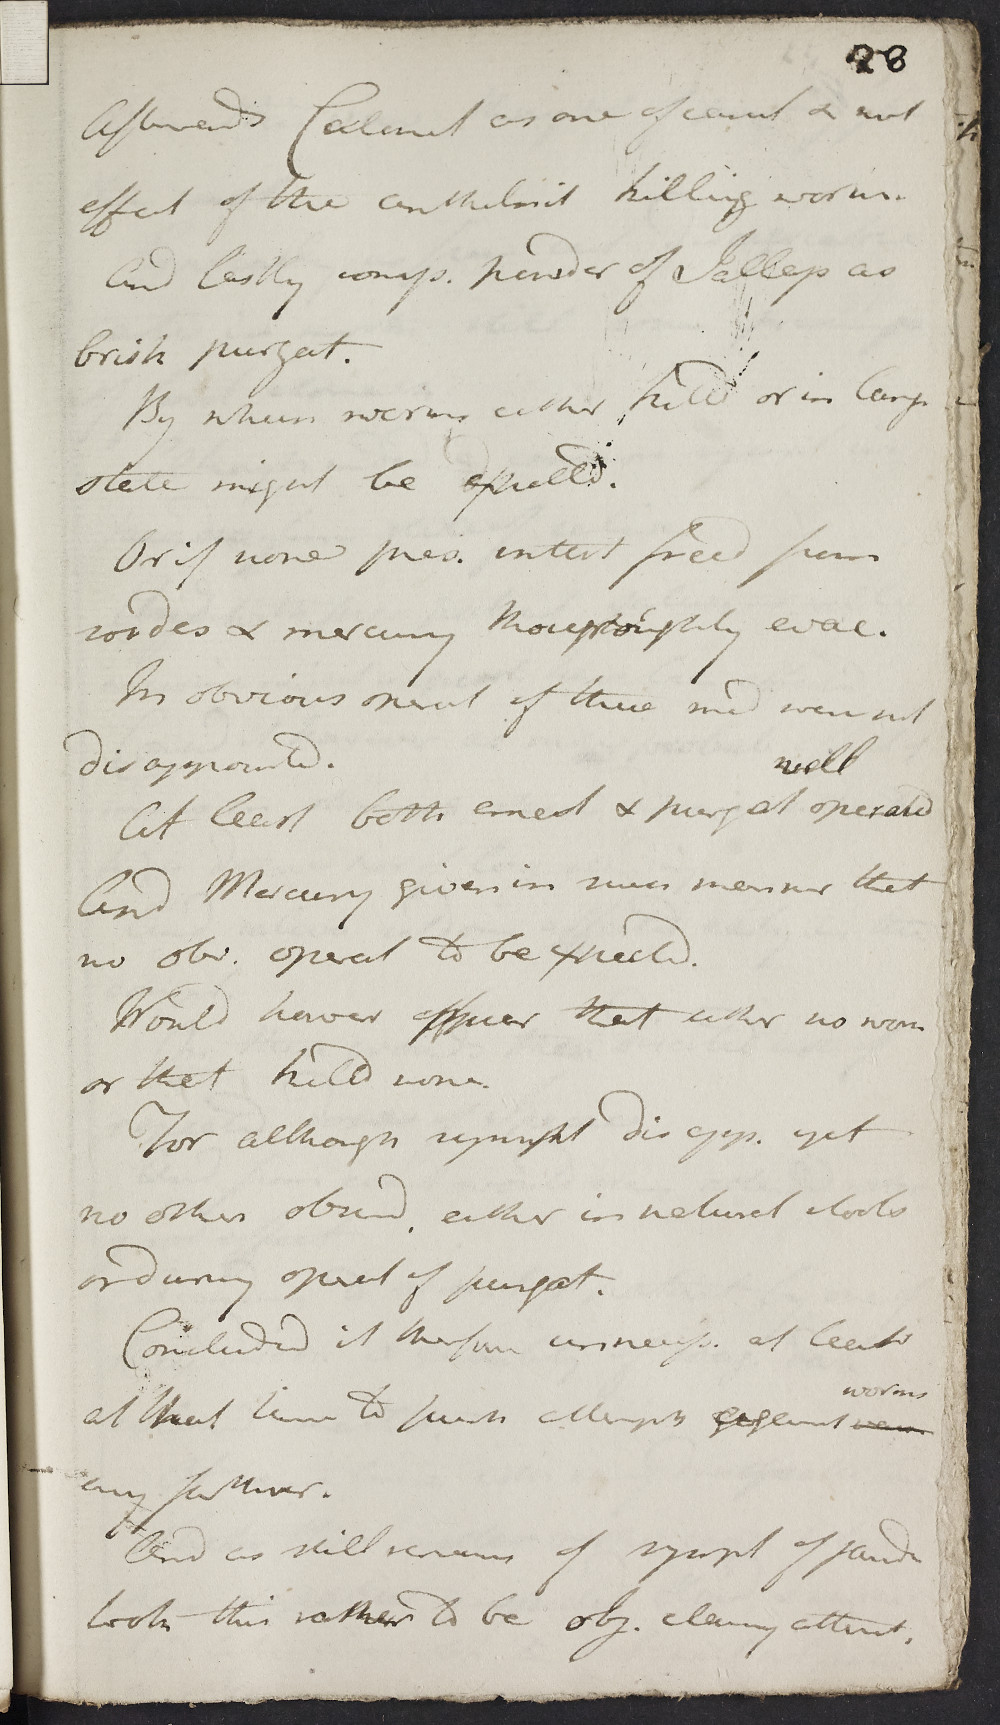 28
Afterwards Calomel as one of cert & not
effect of the anthelmit killing worm.
And lastly comp. powder of Jallap as
brisk purgat.
By whch worms either killd or in lang
state might be expelled.
Or if none pres. intest freed from
sordes & mercury thouroughly evac.
In obvious operat of these med were not
disappointd.
well
At least both emet & purgat operatd
And Mercury given in such manner that
no obv. operat to be expectd.
Would howver appear that either no worm
or that killd none.
For although sympt disapp. yet
no other obsrvd, either in natural stools
or during operat of purgat.
Concluded it therfore unnecess. at least
worms
at that time to push attempts against
any further.
And as still remains of sympt of jaundi
took this rather to be obj. claimg attent.